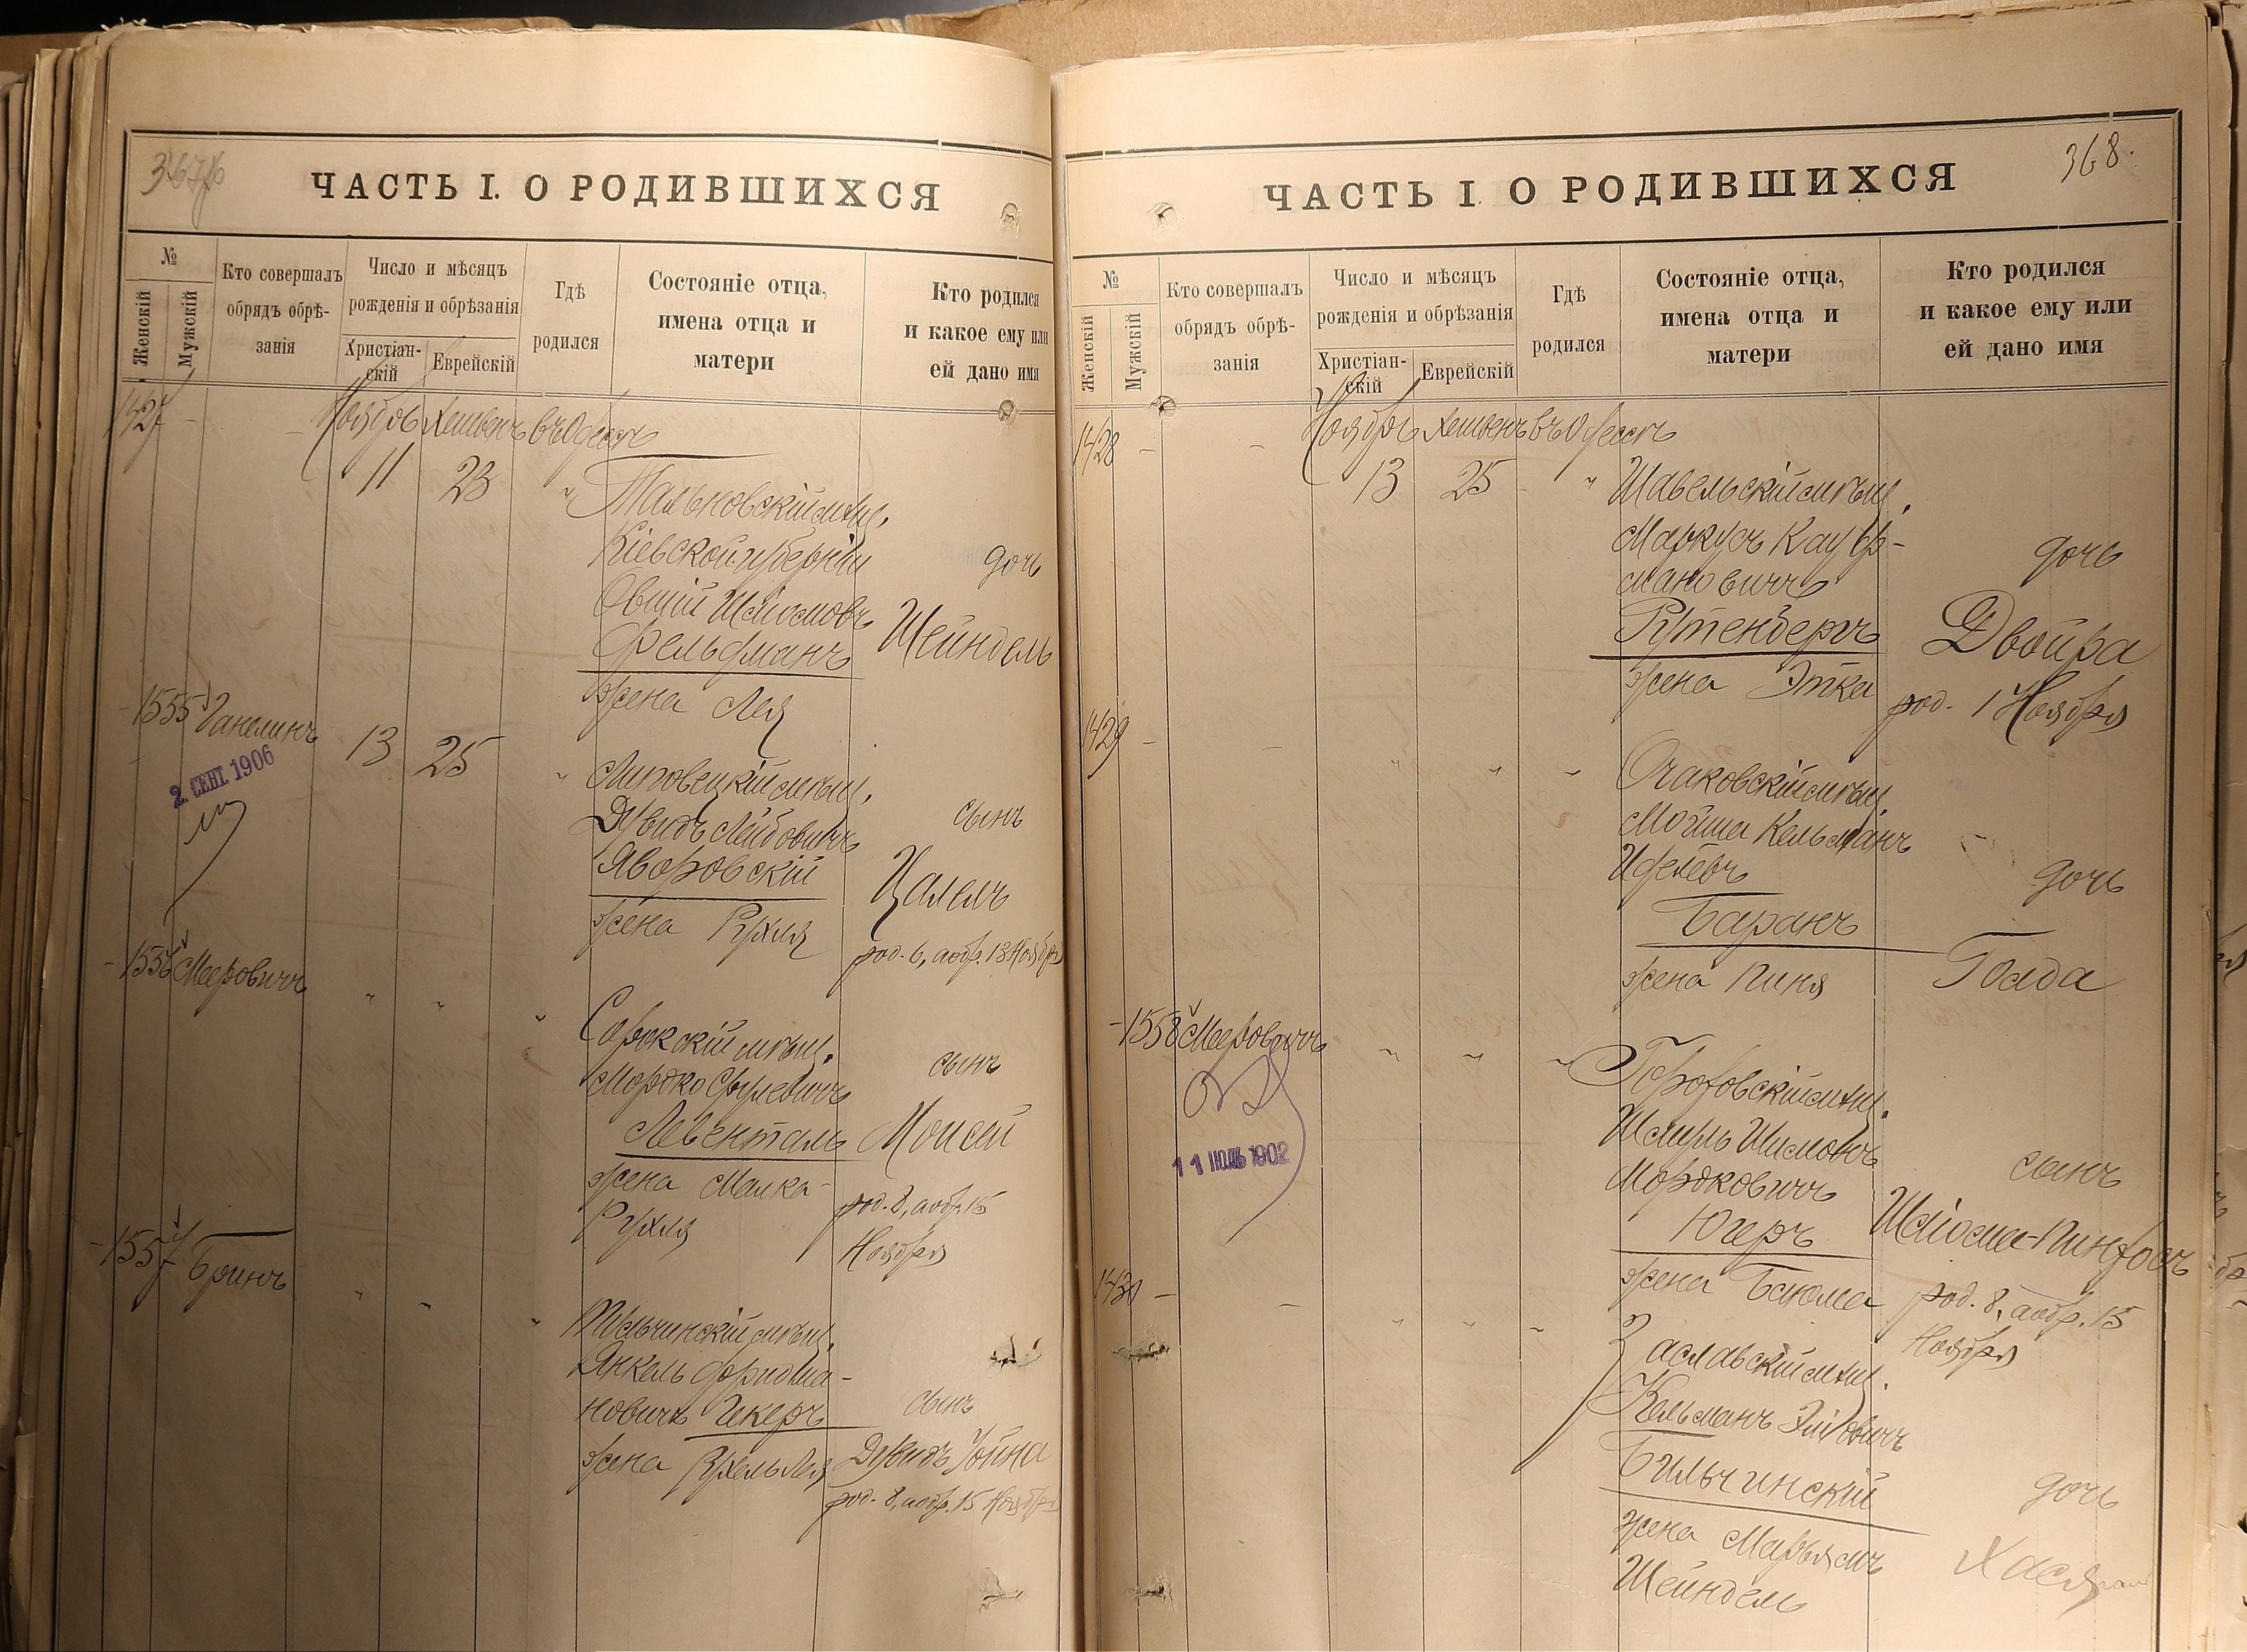 ЧАСТЬ I. О РОДИВШИХСЯ
№
Женскій
Мужскій
Кто совершалъ
обрядъ обрѣ-
занія
Число и мѣсяцъ
рожденія и обрѣзанія
Христіан-
скій
Еврейскій
Гдѣ
родился
Состояніе отца,
имена отца и
матери
Кто родился
и какое ему или
ей дано имя
1427 -
Ноябрь Хешвенъ въ Одессѣ
11 23 "
Тальновскій мѣщ.
Кіевской губерніи
Овшій Шліомовъ
Фельдманъ
жена Лея
дочь
Шейндель
-1555 Ганелинъ
2. СЕНТ. 1906
13 25 "
Липовецкій мѣщ.
Дувидъ Лейбовичъ
Яворовскій
жена Рухля
сынъ
Цалель
род. 6, аобр. 13 Ноября
-1556 Мееровичъ
" " "
Сорокскій мѣщ.
Мордко Срулевичъ
Левенталь
жена Малка-
Рухля
сынъ
Моисей
род. 8, аобр. 15
Ноября
-1557 Бринъ
" " "
Тульчинскій мѣщ.
Янкель
новичъ Чекеръ
жена Рухель Лея
сынъ
Дувидъ Іойна
род. 8, аобр. 15 Ноября
368.
ЧАСТЬ I. О РОДИВШИХСЯ
№
Женскій
Мужскій
Кто совершалъ
обрядъ обрѣ-
занія
Число и мѣсяцъ
рожденія и обрѣзанія
Христіан-
скій
Еврейскій
Гдѣ
родился
Состояніе отца,
имена отца и
матери
Кто родился
и какое ему или
ей дано имя
1428 - -
Ноябрь Хешвенъ въ Одессѣ
13 25 "
Шавельскій мѣщ.
Маркусъ Кауф-
мановичъ
Рутенбергъ
жена Этка
дочь
Двойра
род. 1 Ноября
1429 - -
" " "
Очаковскій мѣщ.
Мойше Кельманъ
Иделевъ
Баранъ
жена Пиня
дочь
Голда
-1558 Мееровичъ
11 ІЮЛЬ 1902
" " "
Шмуль Шимонъ
Мордковичъ
Югеръ
жена Блюма
сынъ
Шліома-Пинхосъ
род. 8, аобр. 15
Ноября
1430 - -
" " "
Заславскій мѣщ.
Кельманъ
Бильчинскій
жена Марьямъ
Шейндель
дочь
Хася